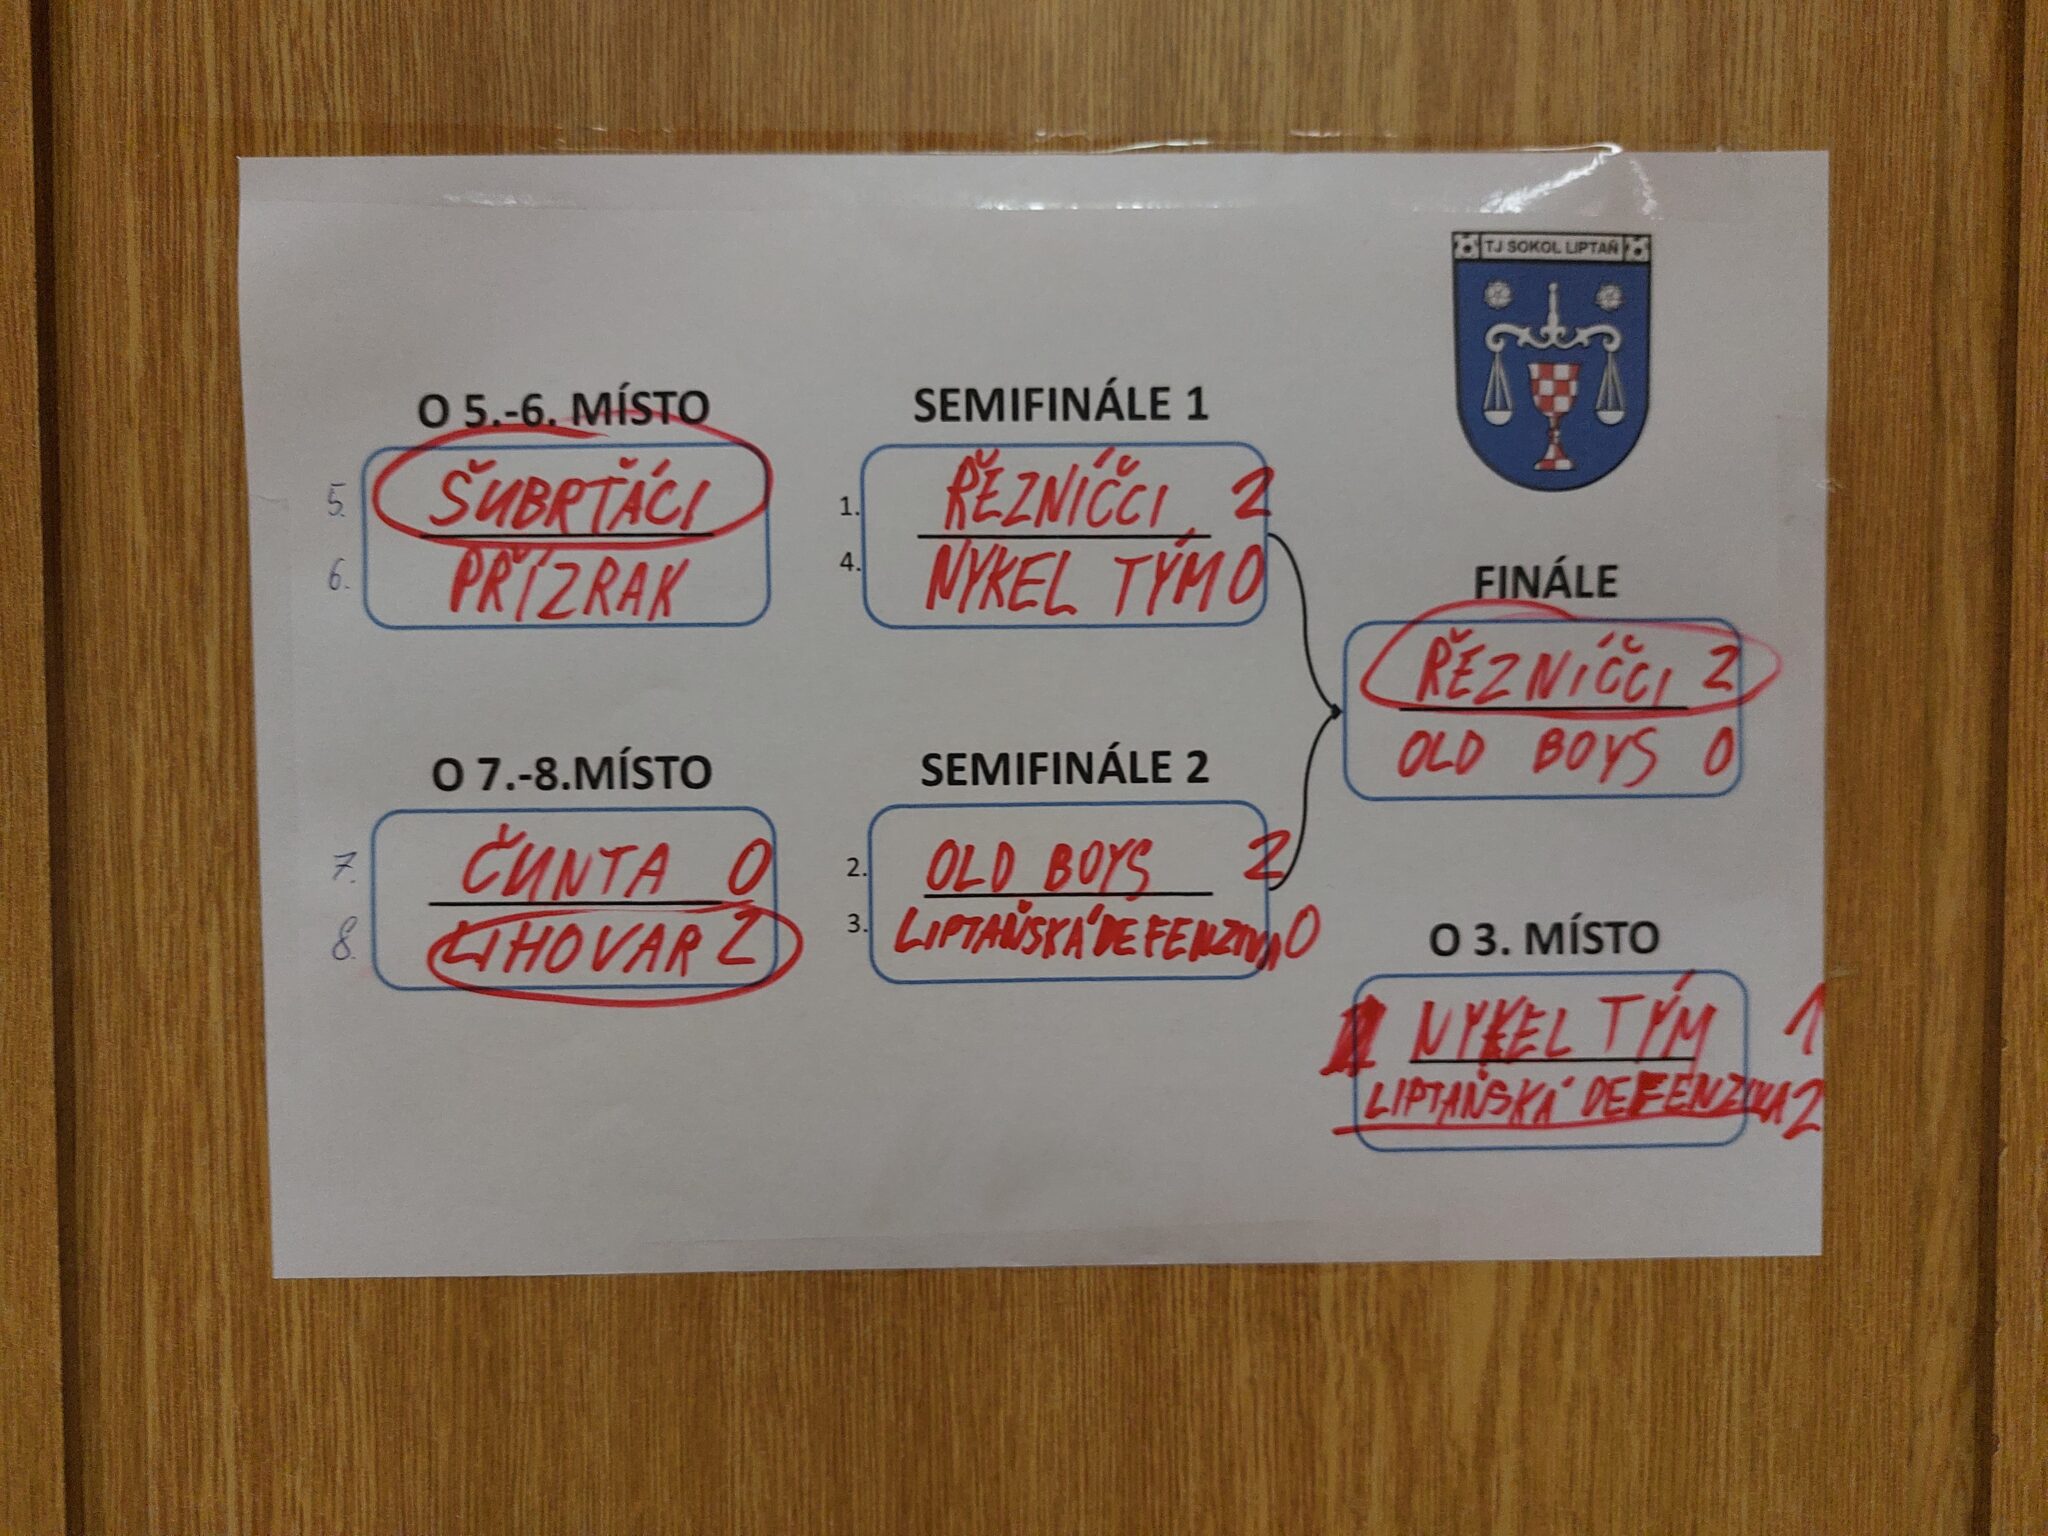 TJ SOKOL LIPTAŇ
O 5.-6. MÍSTO
5. ŠUBRŤÁCI
6. PŘÍZRAK
SEMIFINÁLE 1
1. ŘEZNÍČCI 2
4. NYKEL TÝM 0
FINÁLE
ŘEZNÍČCI 2
OLD BOYS 0
O 7.-8.MÍSTO
7. ČUNTA 0
8. LIHOVAR 2
SEMIFINÁLE 2
2. OLD BOYS 2
3. LIPTAŇSKÁ DEFENZIVA 0
O 3. MÍSTO
NYKEL TÝM 1
LIPTAŇSKÁ DEFENZIVA 2